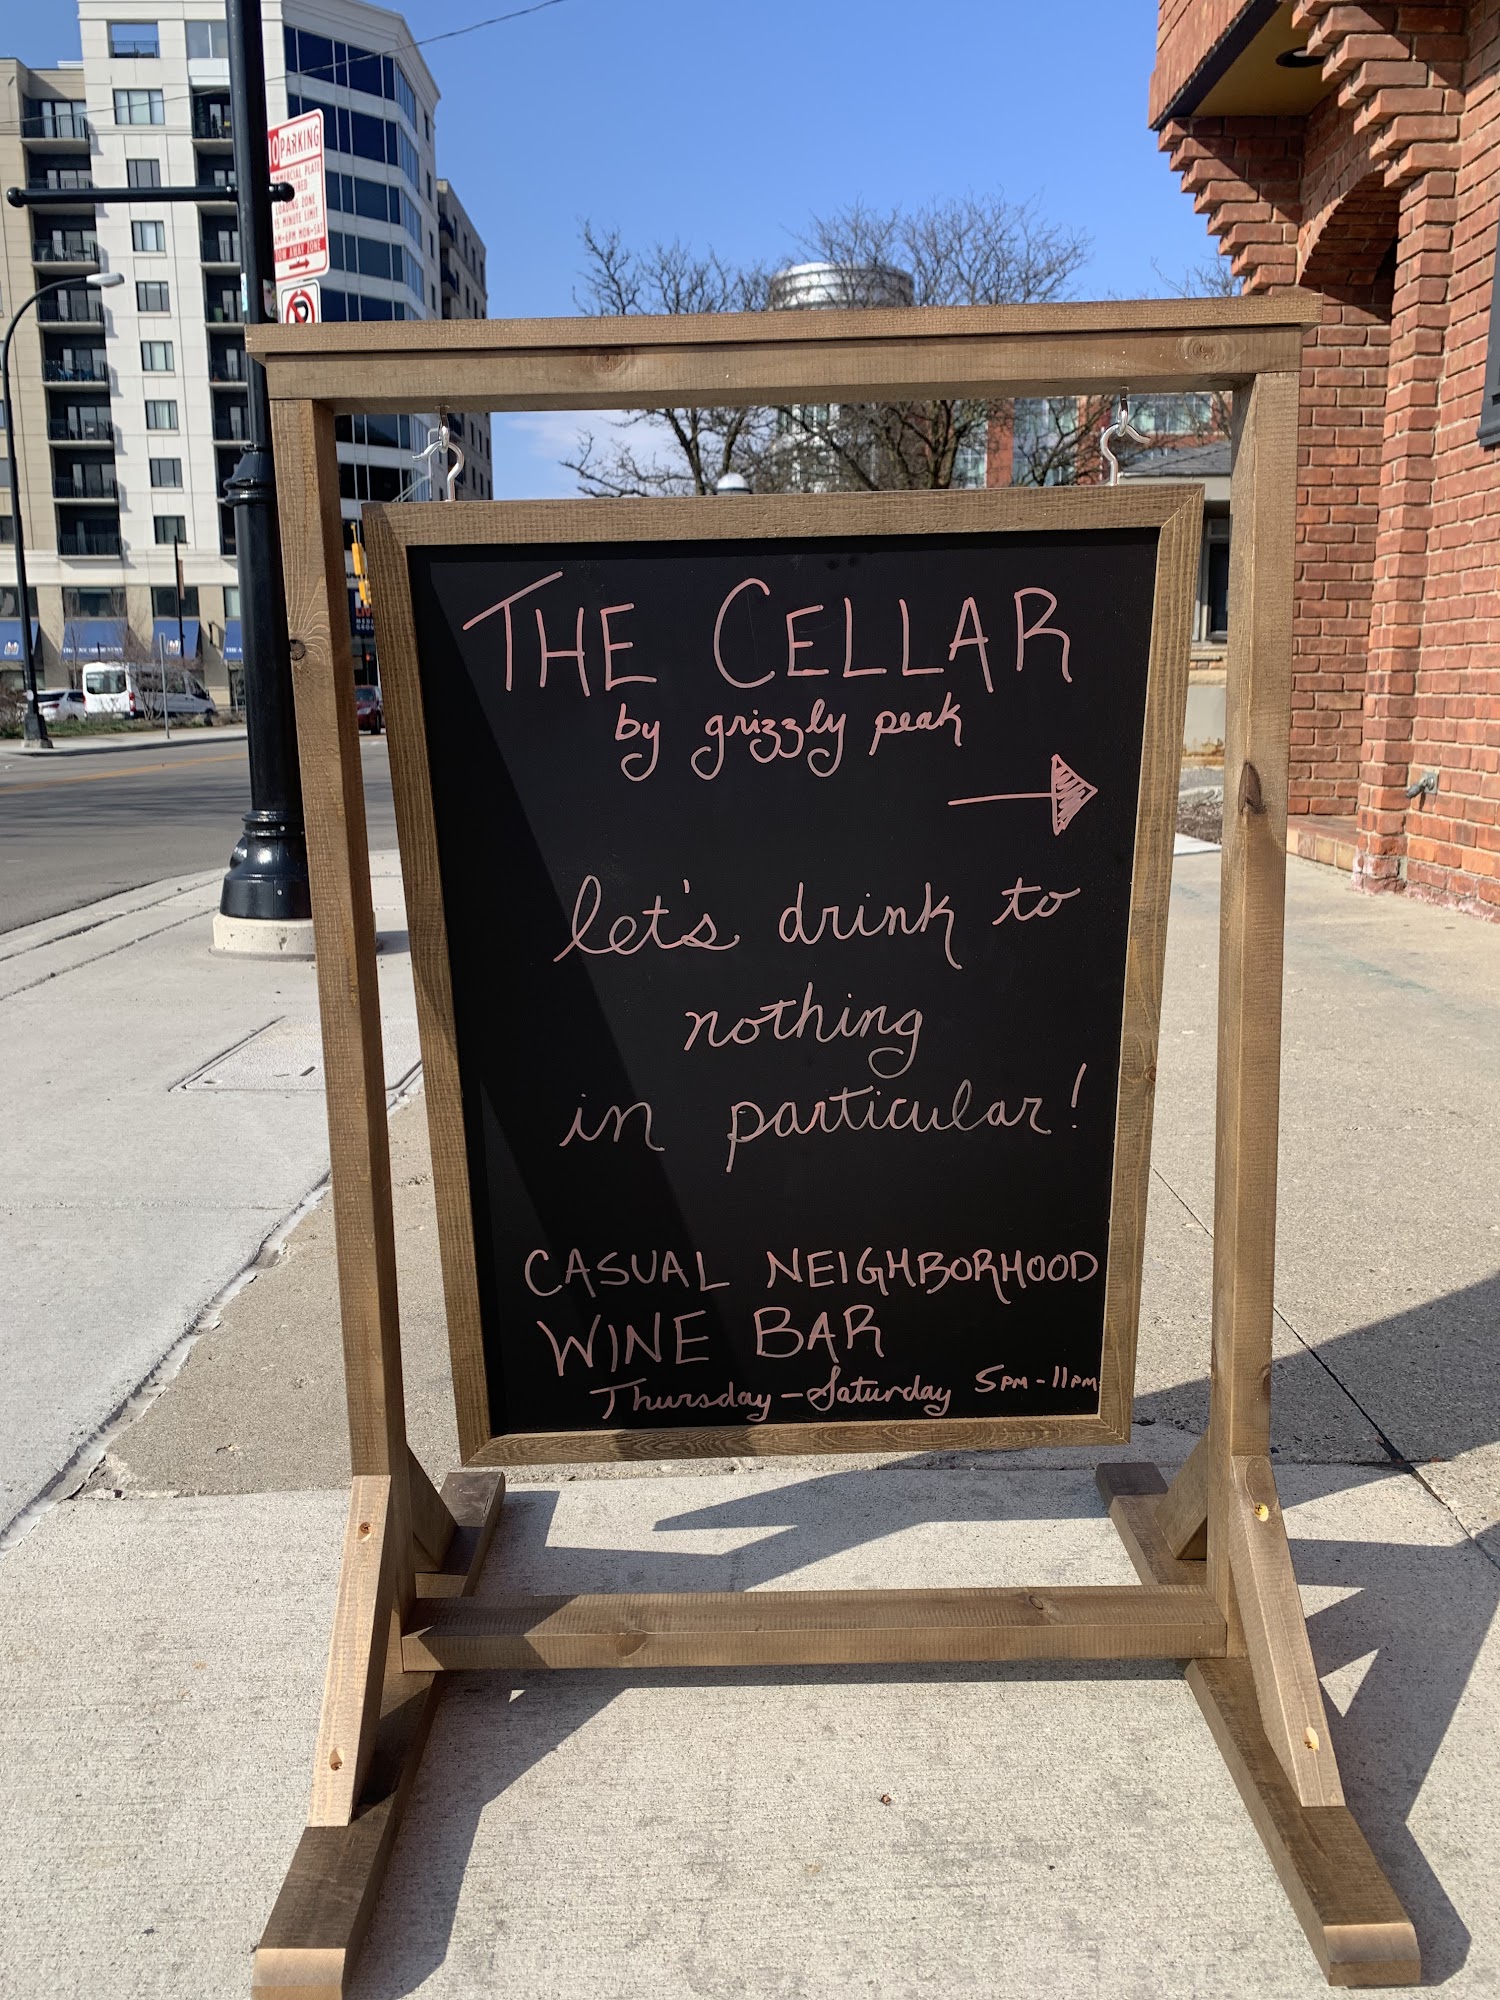 PARKING
LOADING ZONE
15 MINUTE LIMIT
TOW AWAY ZONE
THE CELLAR
by grizzly peak
let's drink to
nothing
in particular!
CASUAL NEIGHBORHOOD
WINE BAR
Thursday - Saturday 5PM - 11PM